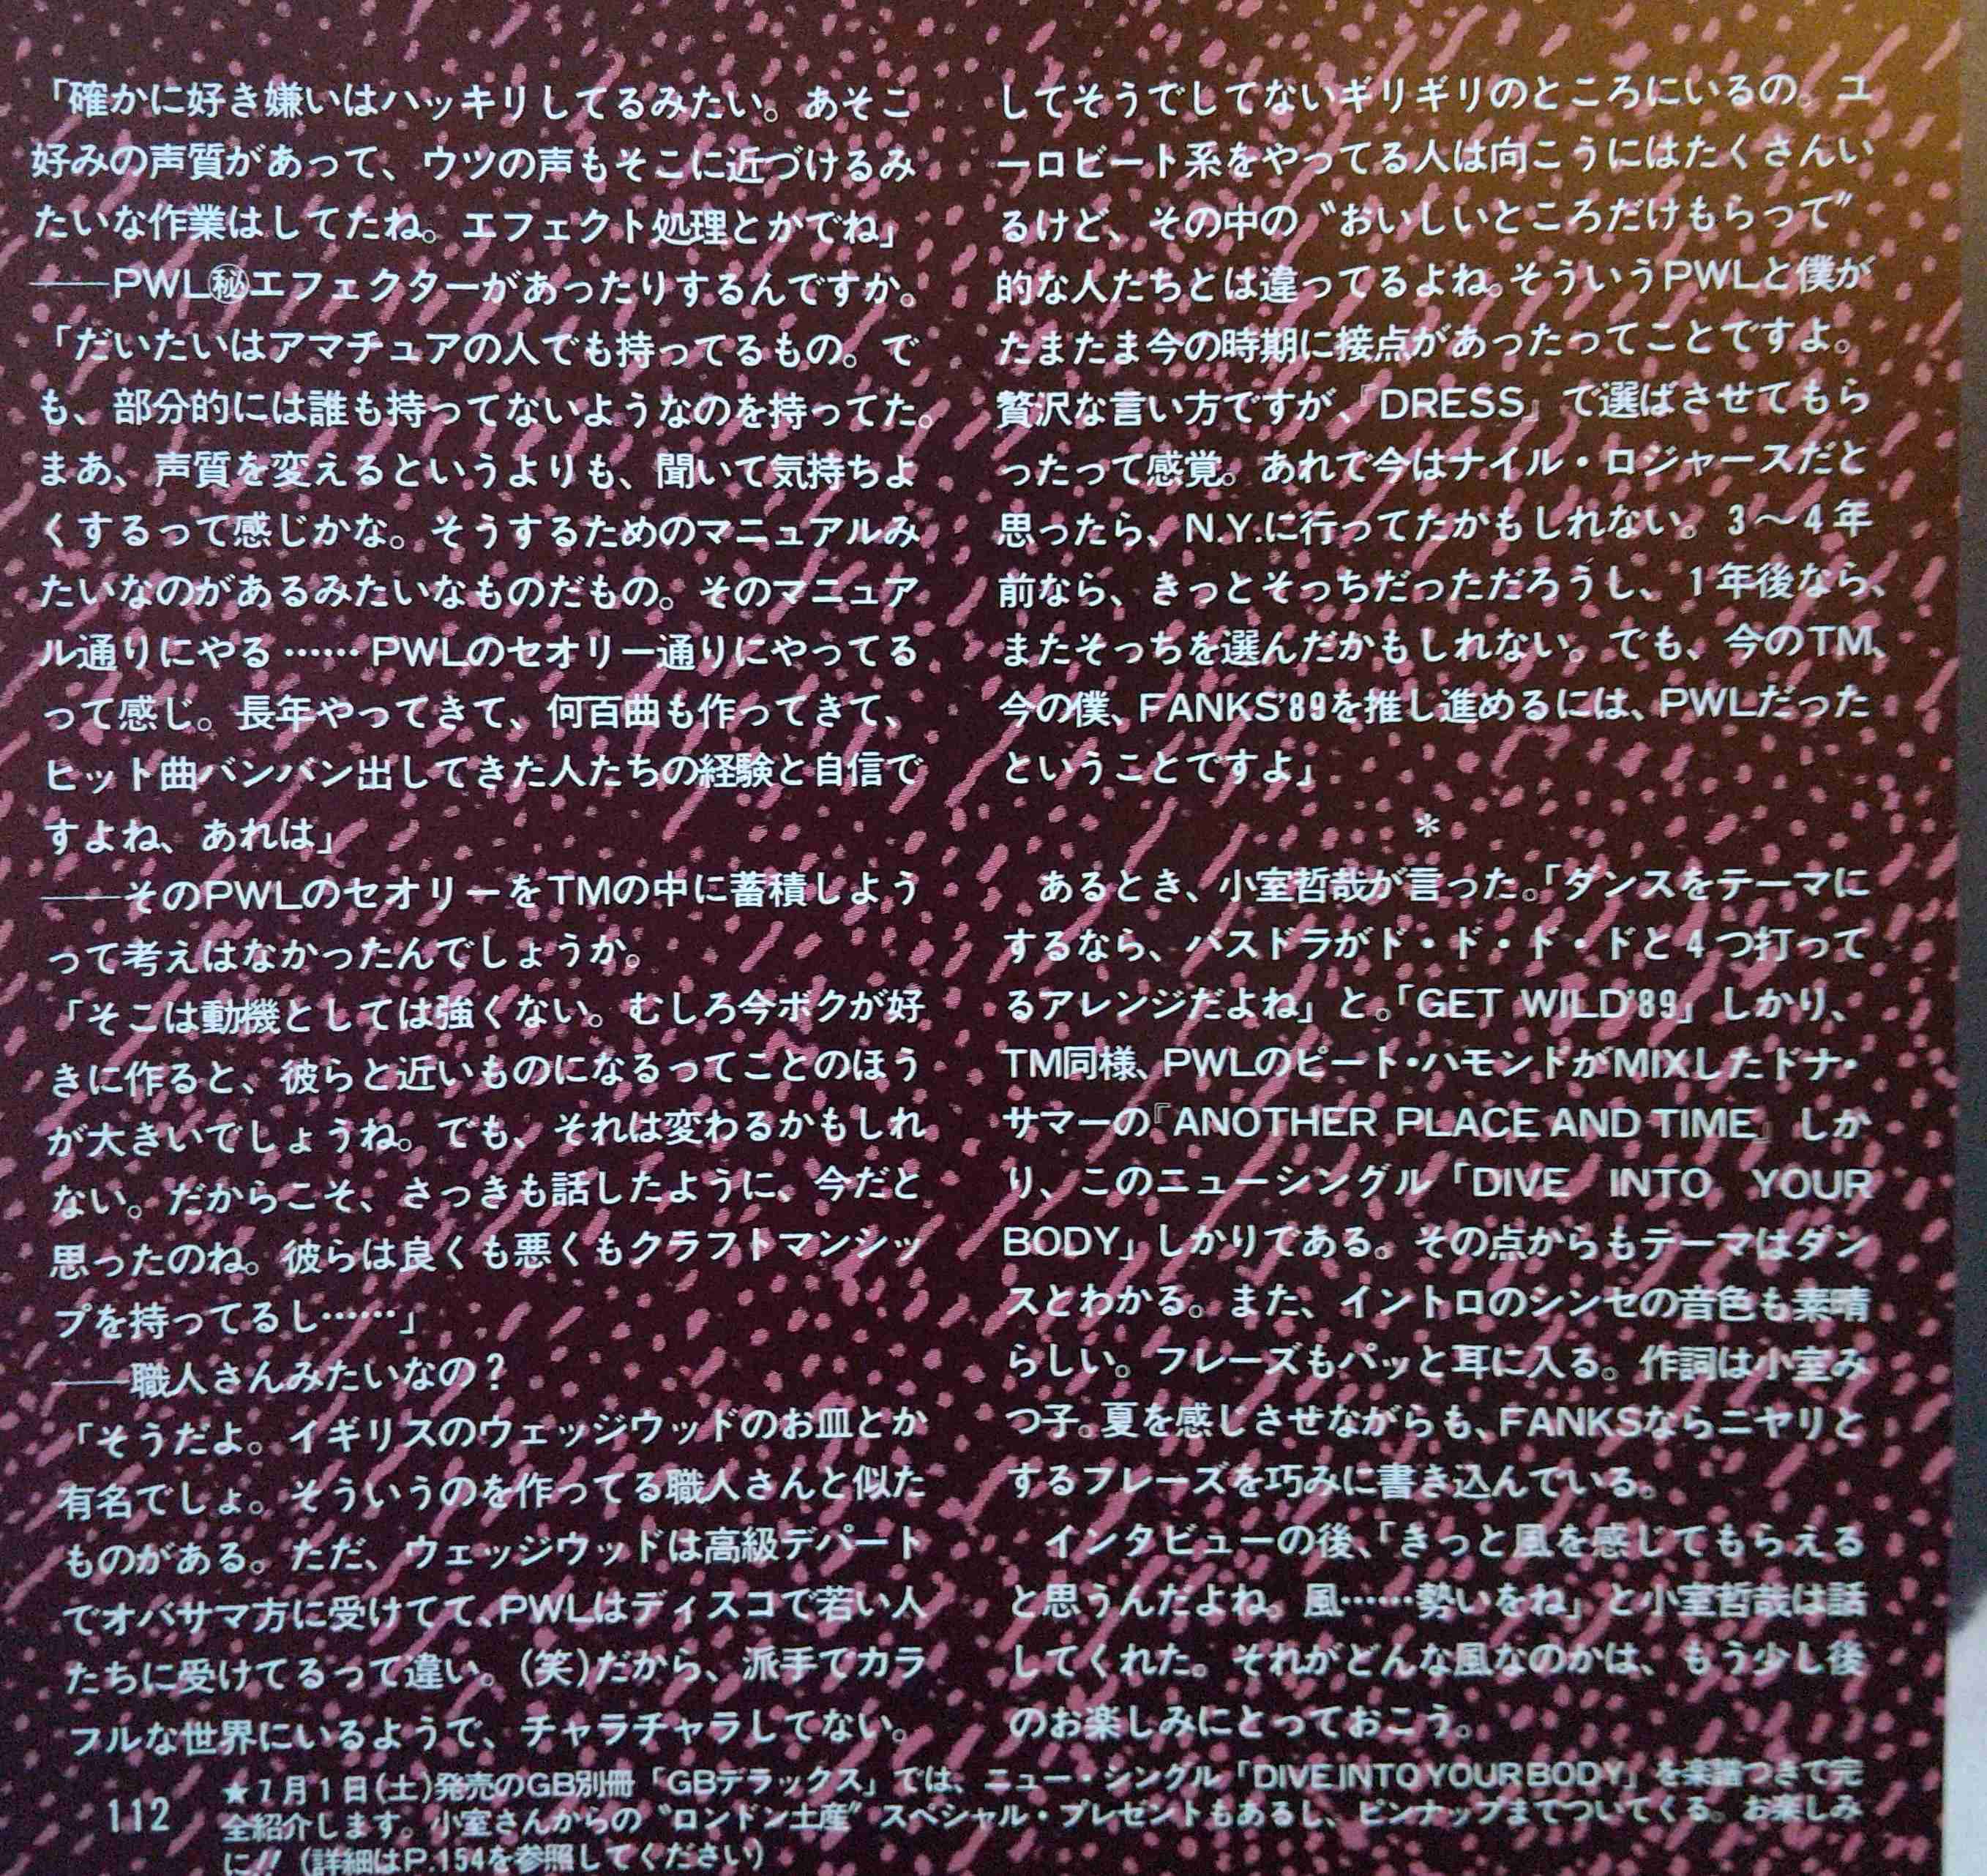 「確かに好き嫌いはハッキリしてるみたい。あそこ
好みの声質があって、ウツの声もそこに近づけるみ
たいな作業はしてたね。エフェクト処理とかでね」
──PWL㊙エフェクターがあったりするんですか。
「だいたいはアマチュアの人でも持ってるもの。で
も、部分的には誰も持ってないようなのを持ってた。
まあ、声質を変えるというよりも、聞いて気持ちよ
くするって感じかな。そうするためのマニュアルみ
たいなのがあるみたいなものだもの。そのマニュア
ル通りにやる……PWLのセオリー通りにやってる
って感じ。長年やってきて、何百曲も作ってきて、
ヒット曲バンバン出してきた人たちの経験と自信で
すよね、あれは」
──そのPWLのセオリーをTMの中に蓄積しよう
って考えはなかったんでしょうか。
「そこは動機としては強くない。むしろ今ボクが好
きに作ると、彼らと近いものになるってことのほう
が大きいでしょうね。でも、それは変わるかもしれ
ない。だからこそ、さっきも話したように、今だと
思ったのね。彼らは良くも悪くもクラフトマンシッ
プを持ってるし……」
──職人さんみたいなの?
「そうだよ。イギリスのウェッジウッドのお皿とか
有名でしょ。そういうのを作ってる職人さんと似た
ものがある。ただ、ウェッジウッドは高級デパート
でオバサマ方に受けてて、PWLはディスコで若い人
たちに受けてるって違い。(笑)だから、派手でカラ
フルな世界にいるようで、チャラチャラしてない。
してそうでしてないギリギリのところにいるの。ユ
ーロビート系をやってる人は向こうにはたくさんい
るけど、その中の〝おいしいところだけもらって〟
的な人たちとは違ってるよね。そういうPWLと僕が
たまたま今の時期に接点があったってことですよ。
贅沢な言い方ですが、『DRESS』で選ばさせてもら
ったって感覚。あれで今はナイル・ロジャースだと
思ったら、N.Y.に行ってたかもしれない。3〜4年
前なら、きっとそっちだっただろうし、1年後なら、
またそっちを選んだかもしれない。でも、今のTM、
今の僕、FANKS'89を推し進めるには、PWLだった
ということですよ」
*
あるとき、小室哲哉が言った。「ダンスをテーマに
するなら、バスドラがド・ド・ド・ドと4つ打って
るアレンジだよね」と。「GET WILD'89」しかり、
TM同様、PWLのピート・ハモンドがMIXしたドナ・
サマーの『ANOTHER PLACE AND TIME』しか
り、このニューシングル「DIVE INTO YOUR
BODY」しかりである。その点からもテーマはダン
スとわかる。また、イントロのシンセの音色も素晴
らしい。フレーズもパッと耳に入る。作詞は小室み
つ子。夏を感じさせながらも、FANKSならニヤリと
するフレーズを巧みに書き込んでいる。
インタビューの後、「きっと風を感じてもらえる
と思うんだよね。風……勢いをね」と小室哲哉は話
してくれた。それがどんな風なのかは、もう少し後
のお楽しみにとっておこう。
112
★7月1日(土)発売のGB別冊「GBデラックス」では、ニュー・シングル「DIVE INTO YOUR BODY」を楽譜つきで完
全紹介します。小室さんからの〝ロンドン土産〟スペシャル・プレゼントもあるし、ピンナップまでついてくる。お楽しみ
に!!(詳細はP.154を参照してください)